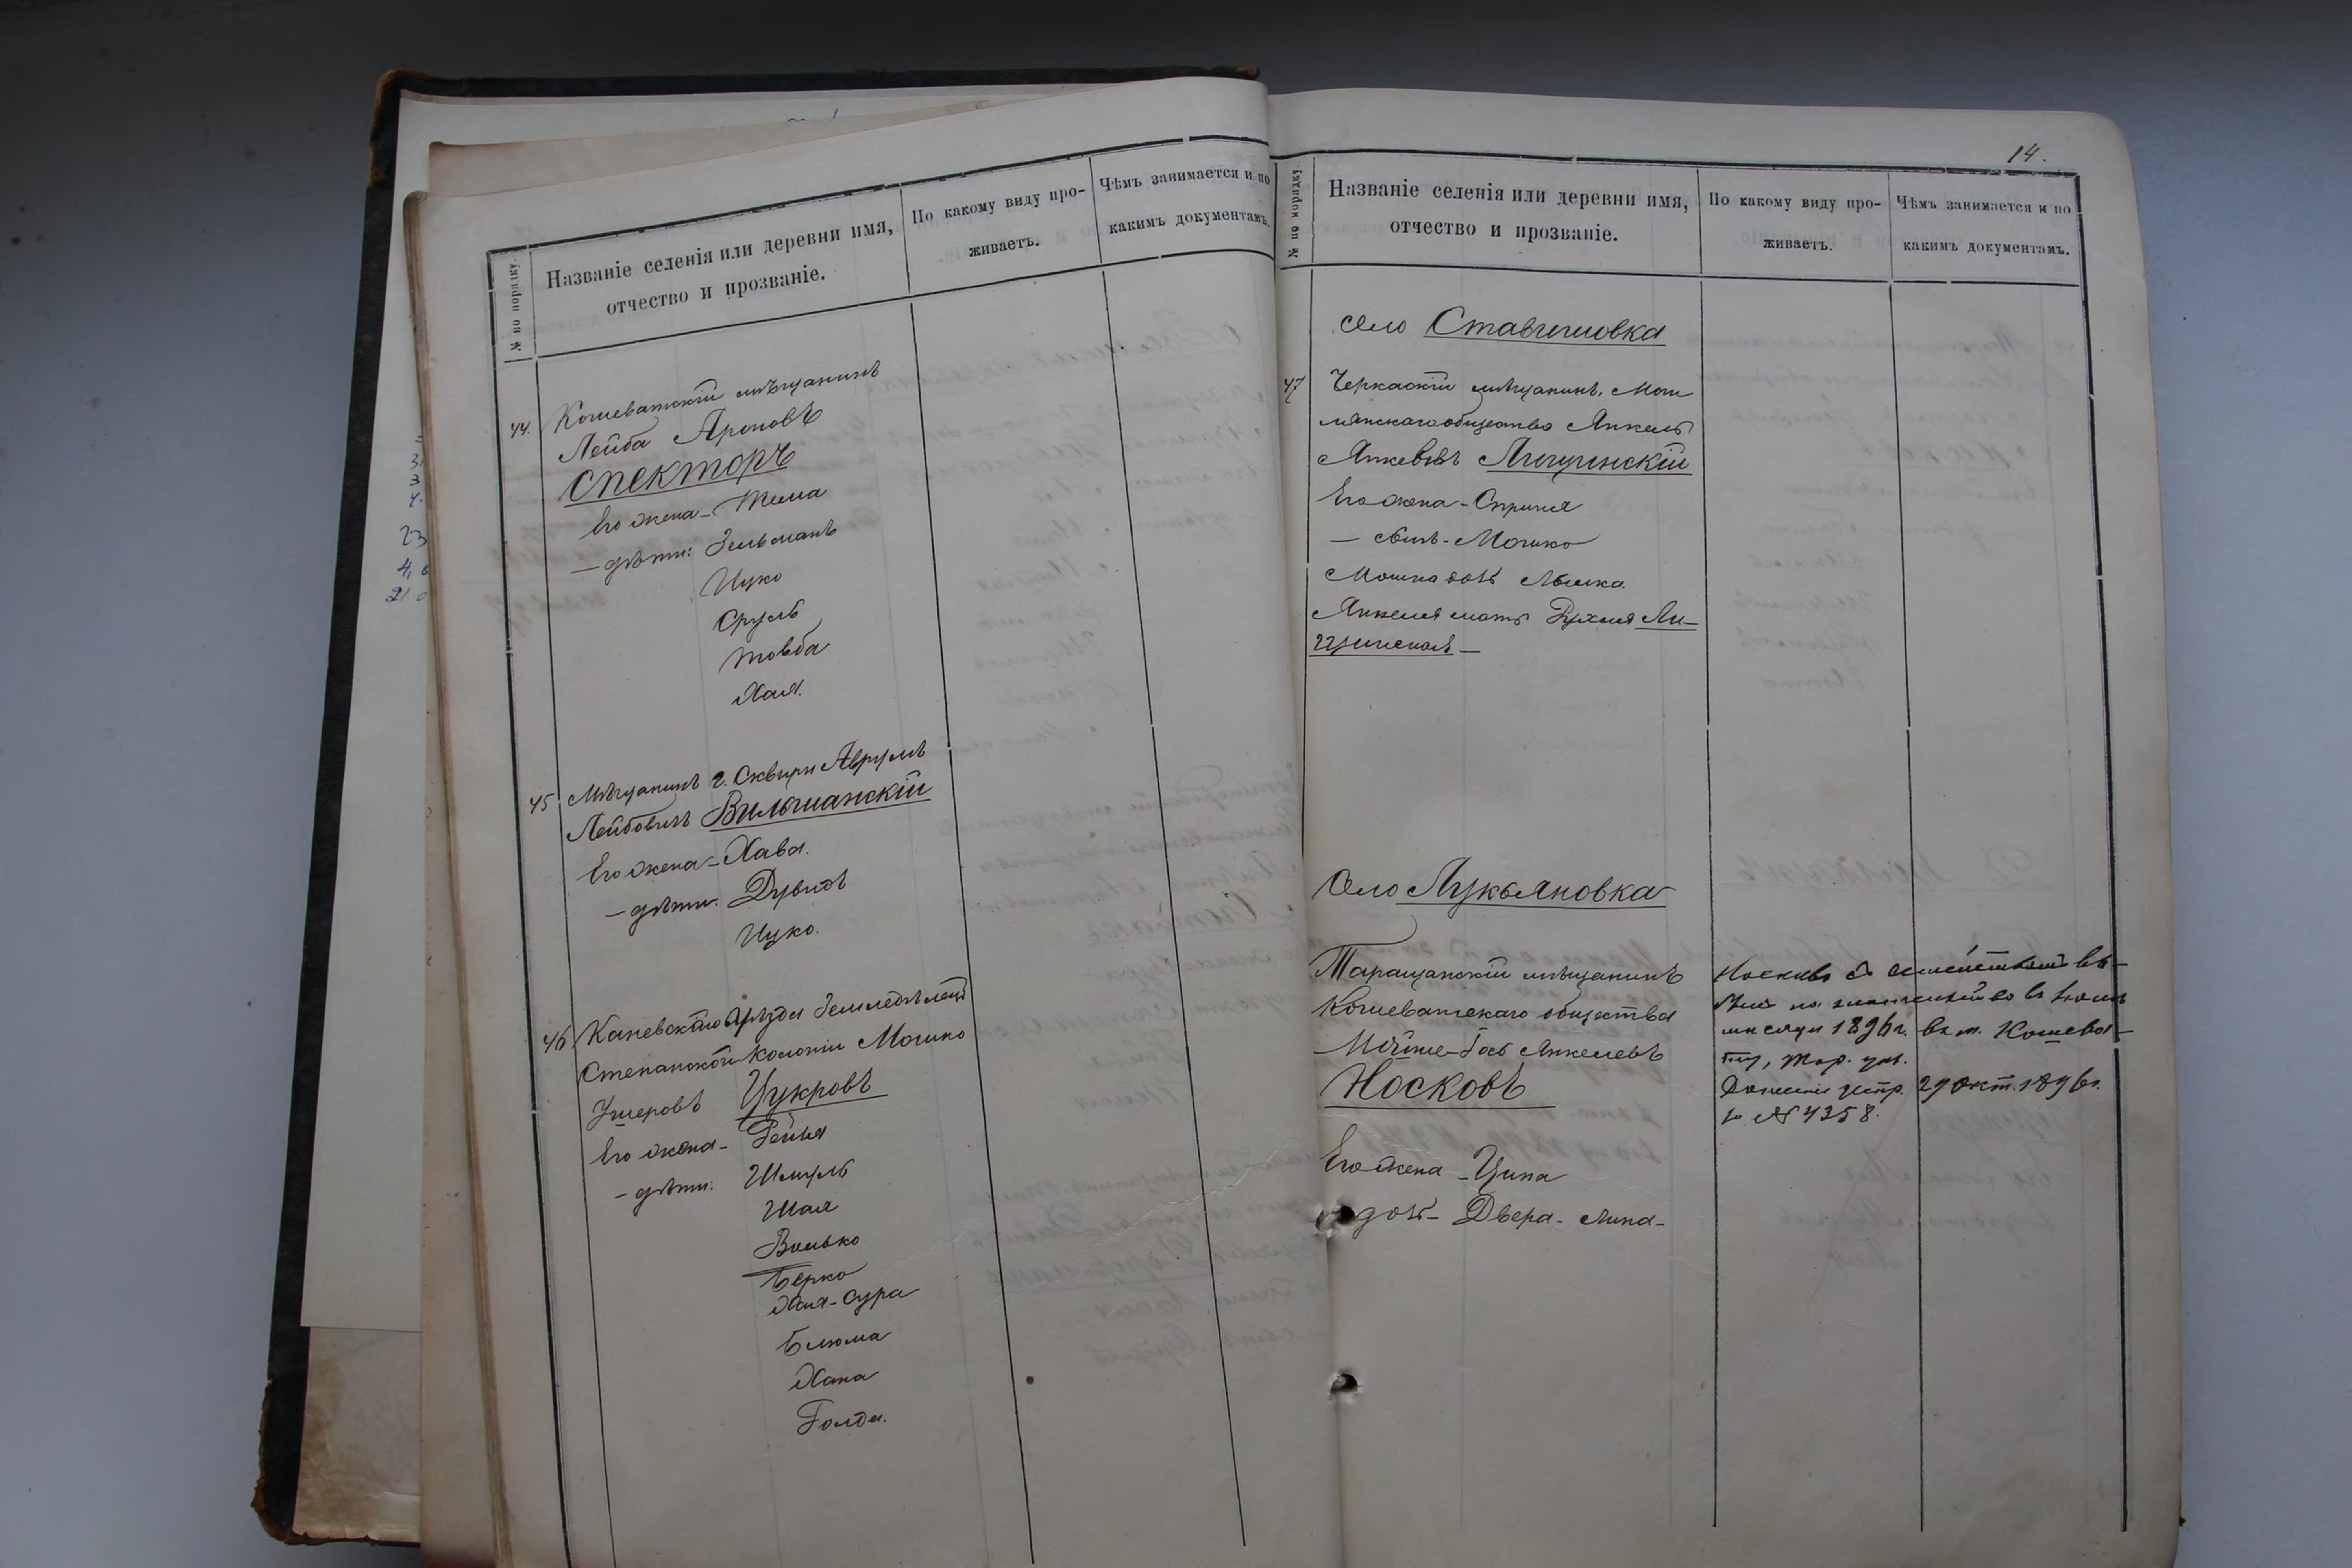 № по порядку.
Названіе селенія или деревни имя,
отчество и прозваніе.
По какому виду про-
живаетъ.
Чѣмъ занимается и по
какимъ документамъ.
44. Кошеватскій мѣщанинъ
Лейба Ароновъ
Спекторъ
Его жена - Тема
— дѣти: Зельманъ
Ицко
Сруль
Товба
Хая.
45 Мѣщанинъ г. Сквиры Аврумъ
Лейбовичъ Вильшанскій
Его жена - Хава.
— дѣти. Дувидъ
Ицко.
46 Каневскаго Уѣзда Земледѣлецъ
Степанской колоніи Мошко
Ушеровъ Цукровъ
Его жена - Рейзя
— дѣти: Шмуль
Шая
Волько
Берко
Хая-Сура
Блюма
Хана
Голда.
14.
№ по порядку.
Названіе селенія или деревни имя,
отчество и прозваніе.
По какому виду про-
живаетъ.
Чѣмъ занимается и по
какимъ документамъ.
село
47 Черкаскій мѣщанинъ, Мош
общества Янкель
Его жена - Сприня
— сынъ - Мошко
Мошка дочь
Янкеля мать Рухля
Село Лукьяновка
Таращанскій мѣщанинъ
Кошеватскаго общества
Янкелевъ
Носковъ
Его жена - Ципа
дочь - Двера -
Носковъ съ семействомъ вы-
на жительство въ
мѣсяцѣ 1896 г. въ м. Кошева-
ту, Тар. уѣз.
29 Окт. 1896 г.
№ 4358.